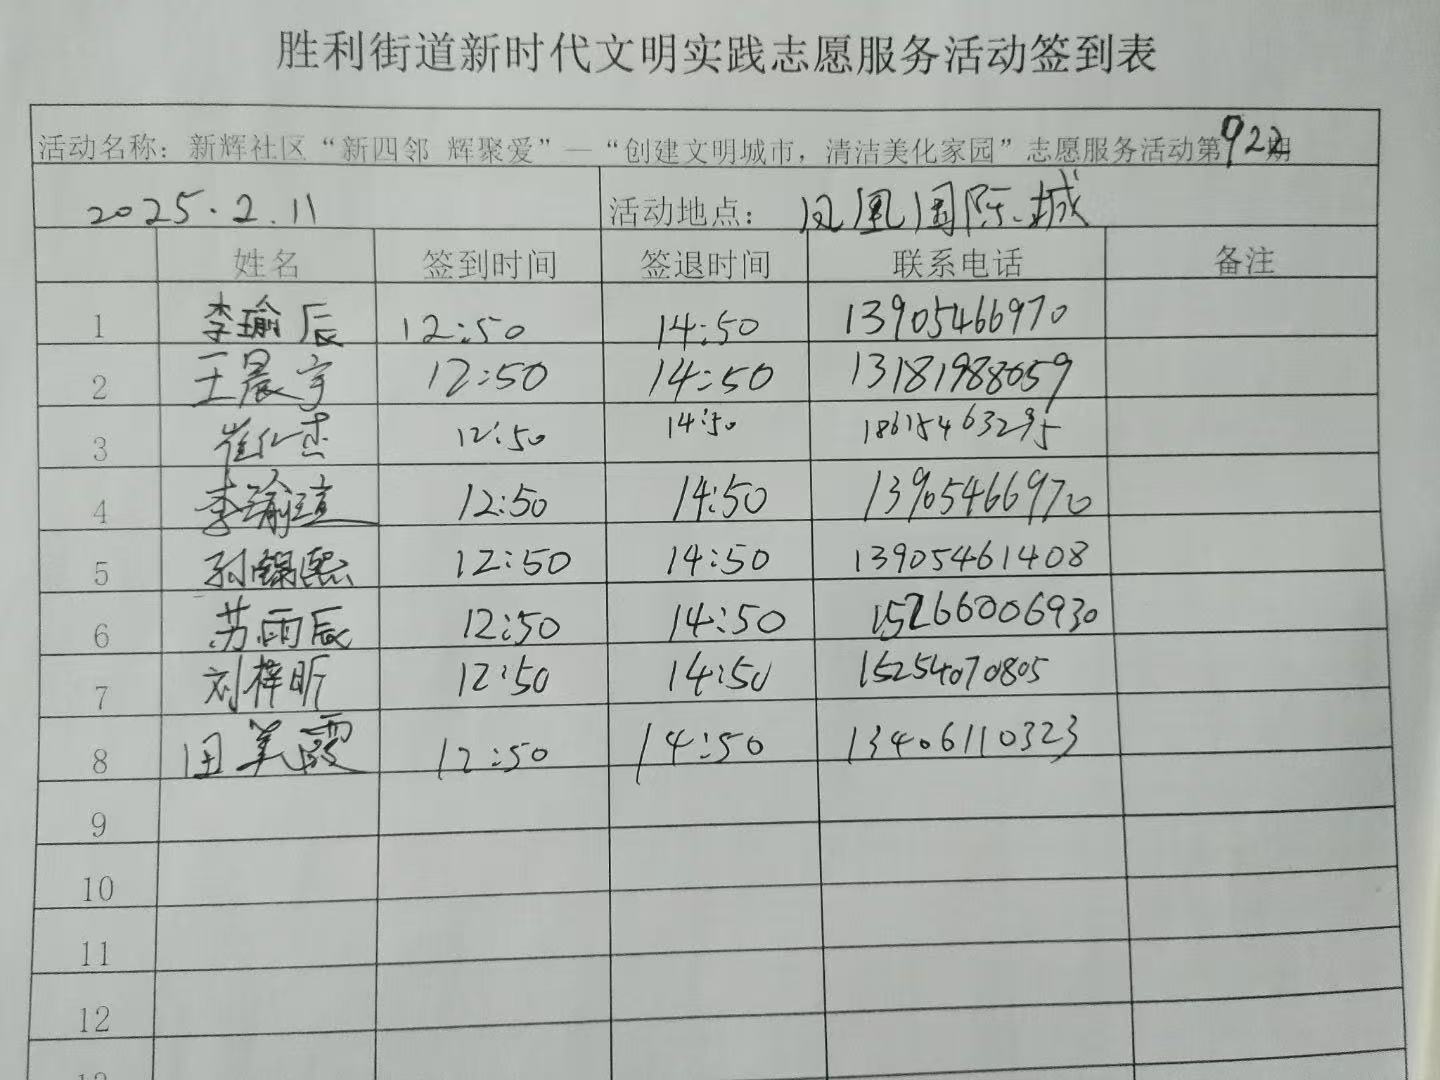 胜利街道新时代文明实践志愿服务活动签到表
活动名称：新辉社区“新四邻 辉聚爱”—“创建文明城市，清洁美化家园”志愿服务活动第922期
2025.2.11 活动地点：凤凰国际城
姓名 签到时间 签退时间 联系电话 备注
1 李瑜辰 12:50 14:50 13905466970
2 王晨宇 12:50 14:50 13181988059
3 崔仁杰 12:50 14:50 18615463295
4 李瑜瑄 12:50 14:50 13905466970
5 孙锦熙 12:50 14:50 13905461408
6 苏雨辰 12:50 14:50 15266006930
7 刘梓昕 12:50 14:50 15254070805
8 田美霞 12:50 14:50 13406110323
9
10
11
12